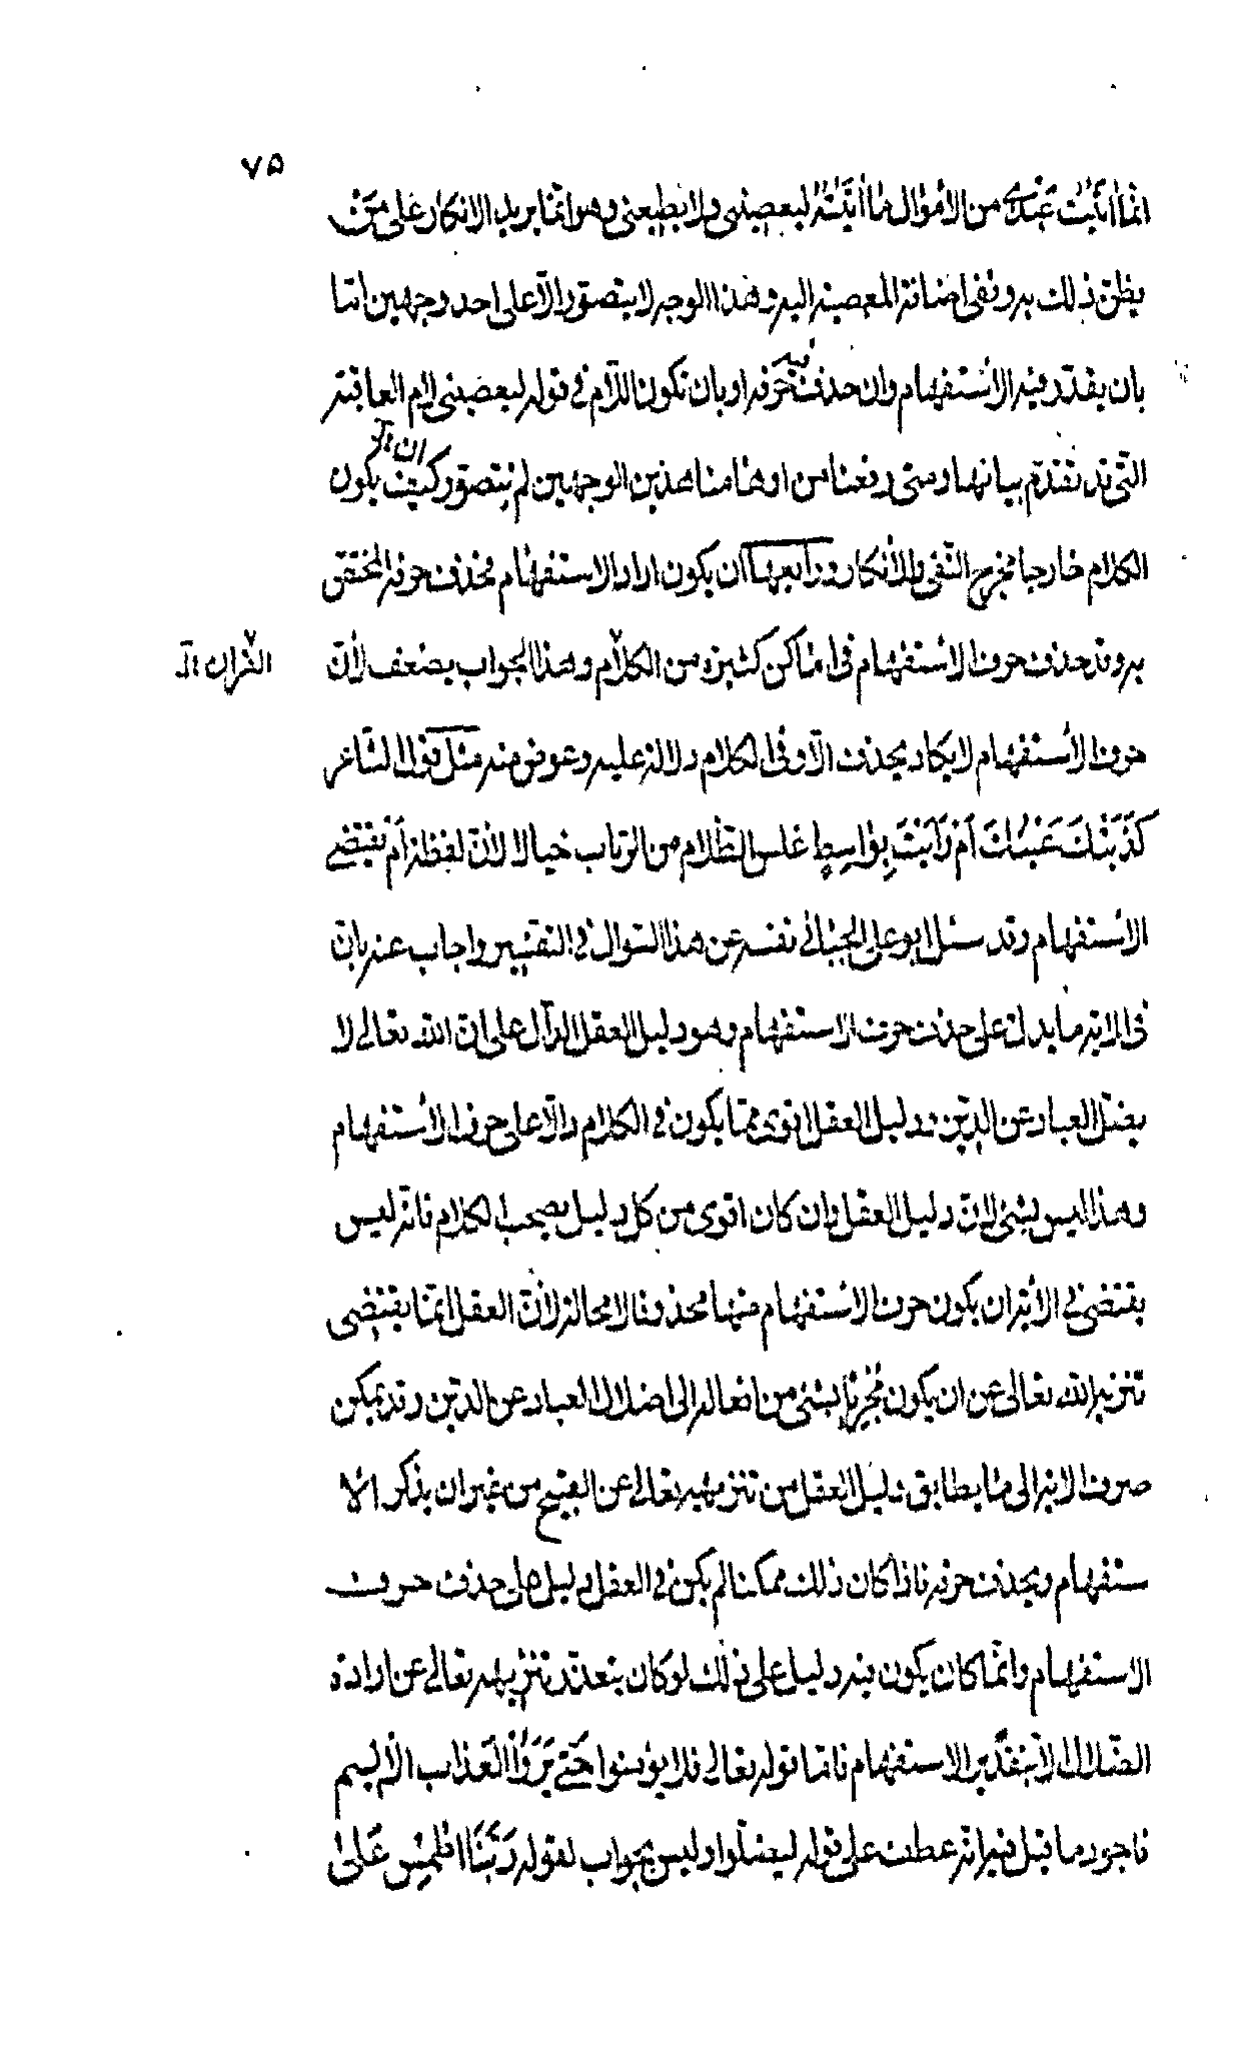 ٧٥
انما اتيت عبدى من الاموال ما اتيته ليعصينى ولا يطيعنى وهو انما يريد الانكار على من
يظن ذلك به ونفى اضافة المعصية اليه وهذا الوجه لا يتصور الا على احد وجهين اما
بان يقدر فيه الاستفهام وان حذف حرفه او بان تكون اللام فى قوله ليعصينى لام العاقبة
التى قد تقدم بيانها ومتى رفعنا من اوهامنا هذين الوجهين لم يتصور كيف يكون
الكلام خارجا مخرج النفى والانكار ورابعها ان يكون اراد الاستفهام فحذف حرفه المختص
به وقد حذف حرف الاستفهام فى اماكن كثيرة من الكلام وهذا الجواب يضعف لان
القران
حرف الاستفهام لا يكاد يحذف الا وفى الكلام دلالة عليه وعوض منه مثل قول الشاعر
كَذَبَتْكَ عَيْنُكَ اَمْ رَاَيْتَ بِوَاسِطٍ غلس الظلام من الرباب خيالا لان لفظة اَمْ يقتضى
الاستفهام وقد سئل ابو على الجبائى نفسه عن هذا السؤال فى التفسير واجاب عنه بان
فى الاية ما يدل على حذف حرف الاستفهام وهو دليل العقل الدال على ان الله تعالى لا
يضل العباد عن الدين ودليل العقل اقوى مما يكون فى الكلام دالا على حرف الاستفهام
وهذا ليس بشئ لان دليل العقل وان كان اقوى من كل دليل يصحب الكلام فانه ليس
يقتضى فى الاية ان يكون حرف الاستفهام منها محذوفا لا محالة لان العقل انما يقتضى
تنزيه الله تعالى عن ان يكون مُجْرِيًا بشئ من افعاله الى اضلال العباد عن الدين وقد يمكن
صرف الاية الى ما يطابق دليل العقل من تنزيهه تعالى عن القبيح من غير ان يذكر الا
ستفهام ويحذف حرفه فاذا كان ذلك ممكنا لم يكن فى العقل دليل على حذف حرف
الاستفهام وانما كان يكون فيه دليل على ذلك لو كان يتعذر تنزيهه تعالى عن ارادة
الضلال الا بتقدير الاستفهام فاما قوله تعالى فلا يؤمنوا حَتّى يَرَوُا العَذاب الاليم
فاجود ما قيل فيه انه عطف على قوله ليضلوا وليس بجواب لقوله رَبَّنَا اطْمِسْ عَلىٰ